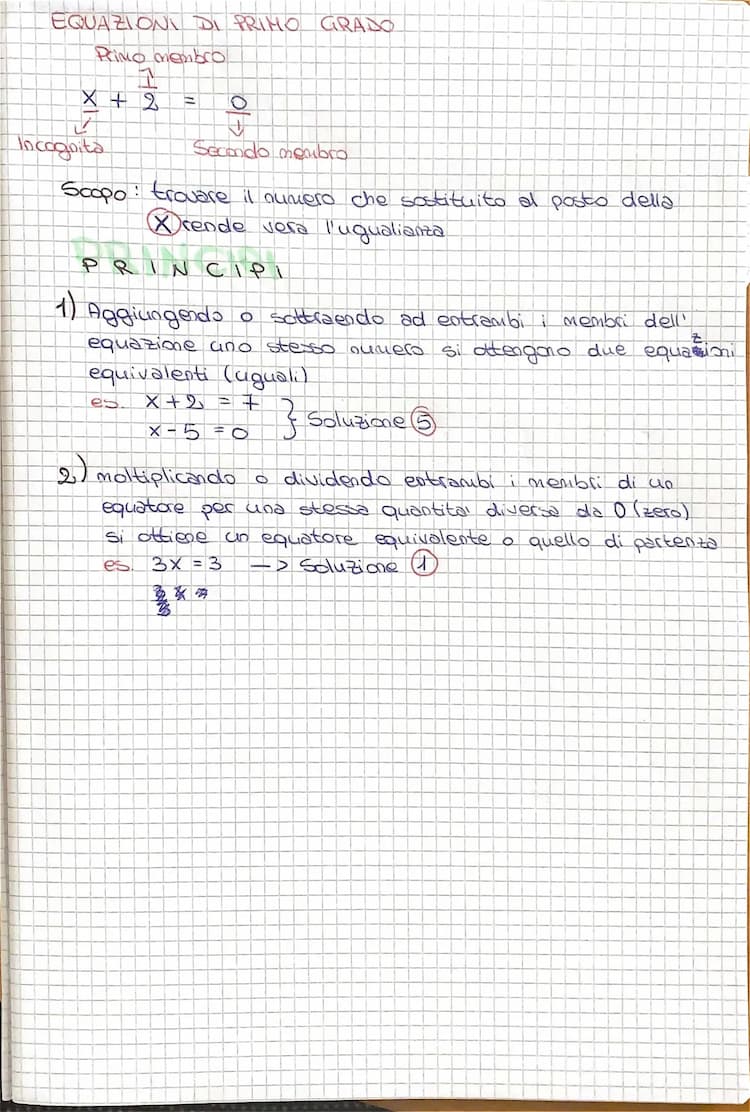 EQUAZIONI DI PRIMO GRADO
Primo membro
x + 2 = 0
Incognita
Secondo membro
Scopo: trovare il numero che sostituito al posto della
x rende vera l'uguglianza
PRINCIPI
1) Aggiungendo o sottraendo ad entrambi i membri dell'
equazione uno stesso numero si ottengono due equazioni
equivalenti (uguali)
es. x+2 = 7
x-5 = 0 } Soluzione 5
2) moltiplicando o dividendo entrambi i membri di un
equatore per una stessa quantità diversa da 0 (zero)
si ottiene un equatore equivalente a quello di partenza
es. 3x = 3 -> Soluzione 1